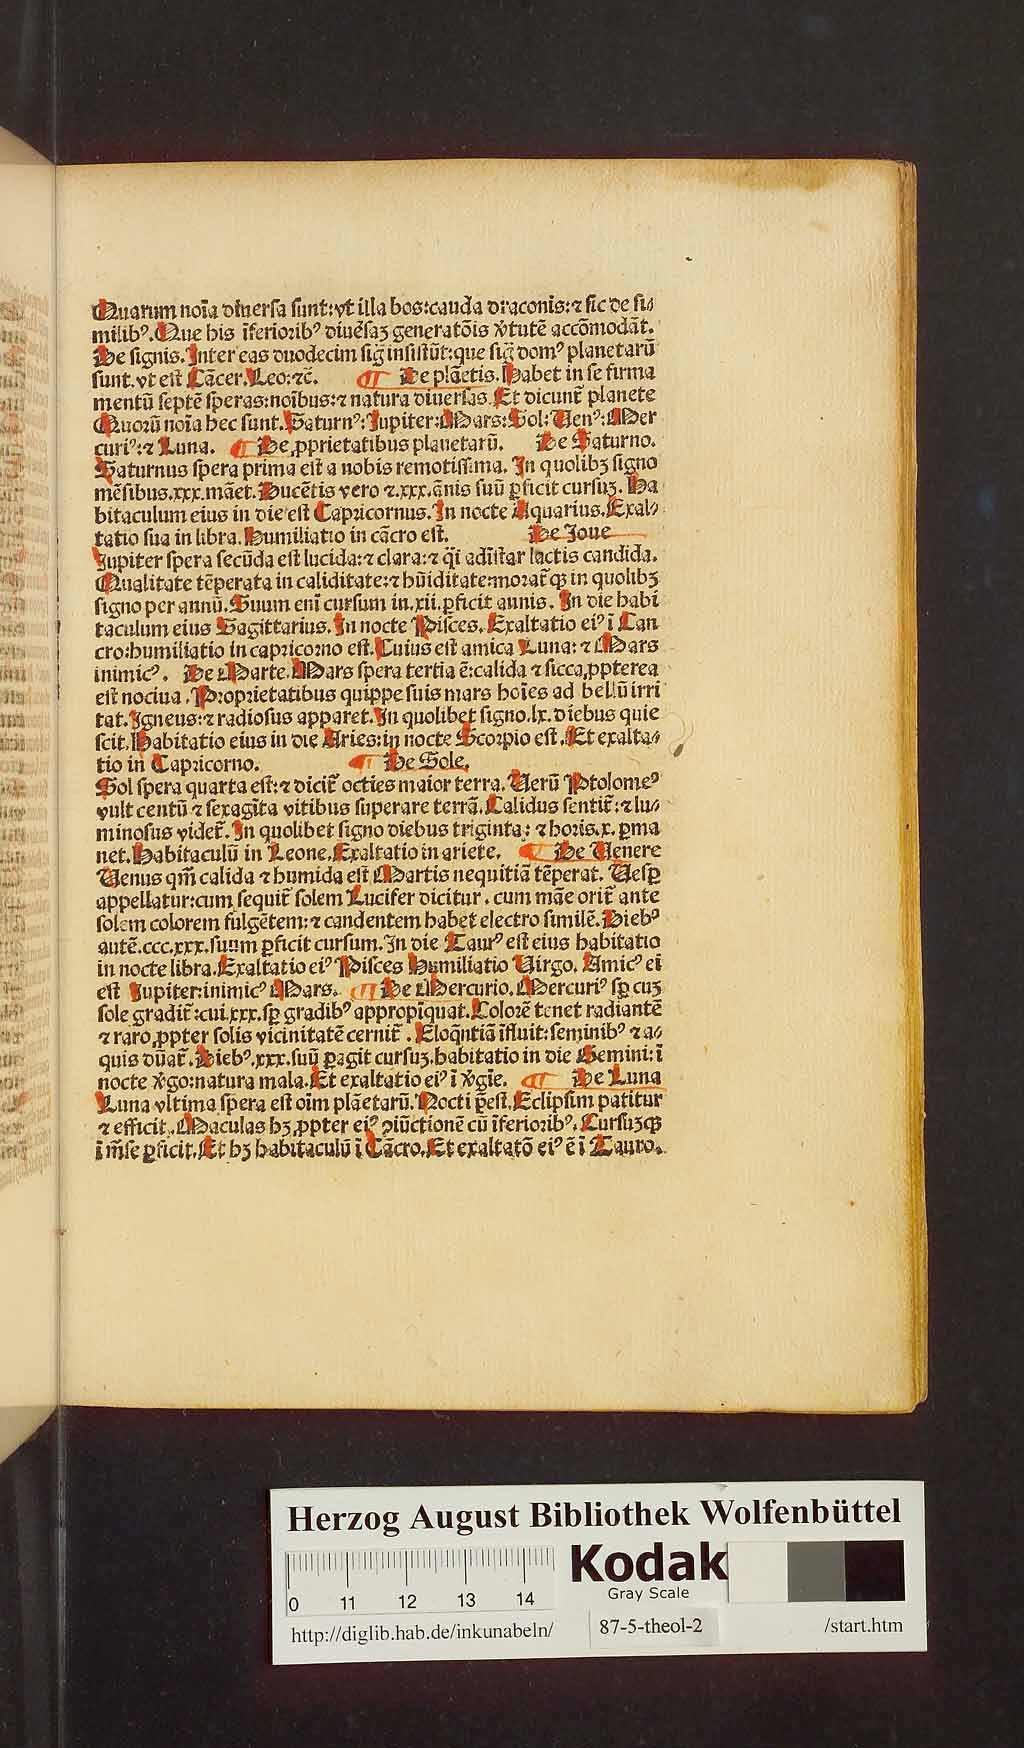 Quarum noīa diuersa sunt: vt illa bos: cauda draconis: ⁊ sic de si⸗
milibꝰ. Que his īferioribꝰ diuēsaꝫ generatōis v̓tutē accōmodāt.
De signis. Inter eas duodecim sig̃ insistūt: que sig̃ domꝰ planetarū
sunt. vt est Cācer. Leo: ⁊c̄. ¶ De plāetis. Habet in se firma
mentū septē speras: noībus: ⁊ natura diuersas. Et dicunt̄ planete
Quorū noīa hec sunt. Saturnꝰ: Jupiter: Mars: Sol: Uenꝰ: Mer
curiꝰ: ⁊ Luna. ¶ De ꝓprietatibus planetarū. De Saturno.
Saturnus spera prima est a nobis remotissima. In quolibꝫ signo
mēsibus.xxx.māet. Ducētis vero ⁊.xxx.ānis suū ꝑficit cursuꝫ. Ha
bitaculum eius in die est Capricornus. In nocte Aquarius. Exal⸗
tatio sua in libra. Humiliatio in cācro est. De Joue
Jupiter spera secūda est lucida: ⁊ clara: ⁊ q̄i adīstar lactis candida.
Qualitate tēperata in caliditate: ⁊ hūiditate: morat̄ qꝫ in quolibꝫ
signo per annū. Suum enī cursum in.xii.ꝑficit annis. In die habi
taculum eius Sagittarius. In nocte Pisces. Exaltatio eiꝰ ī Can
cro: humiliatio in capricorno est. Cuius est amica Luna: ⁊ Mars
inimicꝰ. De Marte. Mars spera tertia ē: calida ⁊ sicca, ꝓpterea
est nociua. Proprietatibus quippe suis mars hoīes ad bellū irri
tat. Igneus: ⁊ radiosus apparet. In quolibet signo.lx.diebus quie
scit. Habitatio eius in die Aries: in nocte Scorpio est. Et exalta⸗
tio in Capricorno. ¶ De Sole.
Sol spera quarta est: ⁊ dicit̄ octies maior terra. Uerū Ptolomeꝰ
vult centū ⁊ sexagīta vitibus superare terrā. Calidus sentit̄: ⁊ lu⸗
minosus videt̄. In quolibet signo diebus triginta: ⁊ horis.x. ꝑma
net. Habitaculū in Leone. Exaltatio in ariete. ¶ De Uenere
Uenus qm̄ calida ⁊ humida est Martis nequitiā tēperat. Uesꝑ
appellatur: cum sequit̄ solem Lucifer dicitur. cum māe orit̄ ante
solem colorem fulgētem: ⁊ candentem habet electro similē. Diebꝰ
autē.ccc.xxx.suum ꝑficit cursum. In die Taurꝰ est eius habitatio
in nocte libra. Exaltatio eiꝰ Pisces Humiliatio Uirgo. Amicꝰ ei
est Jupiter: inimicꝰ Mars. ¶ De Mercurio. Mercuriꝰ sꝑ cuꝫ
sole gradit̄: cui.xxx.sꝑ gradibꝰ appropīquat. Colorē tenet radiantē
⁊ raro ꝓpter solis vicinitatē cernit̄. Eloq̄ntiā īfluit: seminibꝰ ⁊ a⸗
quis dn̄at̄. Diebꝰ.xxx.suū ꝑagit cursuꝫ. habitatio in die Gemini: ī
nocte v̓go: natura mala. Et exaltatio eiꝰ ī v̓gīe. ¶ De Luna
Luna vltima spera est oīm plāetarū. Nocti p̄est. Eclipsim patitur
⁊ efficit. Maculas hꝫ ꝓpter eiꝰ ꝯiūctionē cū īferioribꝰ. Cursuꝫqꝫ
ī m̄se ꝑficit. Et hꝫ habitaculū ī Cācro. Et exaltatō eiꝰ ē ī Tauro.
Herzog August Bibliothek Wolfenbüttel
Kodak
Gray Scale
0 11 12 13 14
http://diglib.hab.de/inkunabeln/ 87-5-theol-2 /start.htm